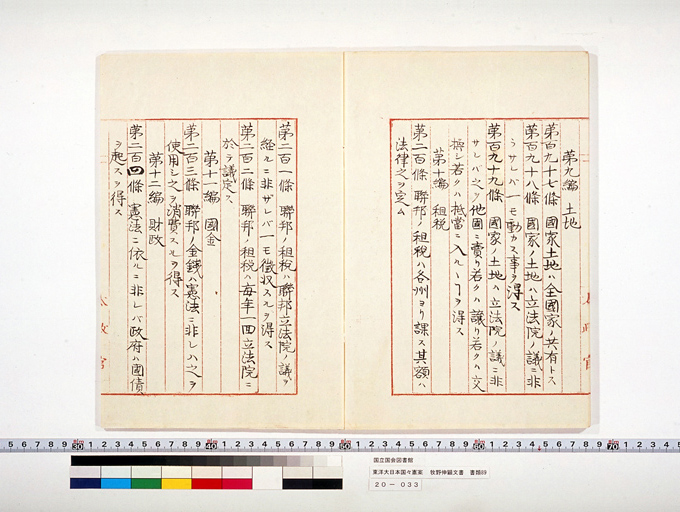 第九編 土地
第百九十七條 國家土地ハ全國家ノ共有トス
第百九十八條 國家ノ土地ハ立法院ノ議ニ非
ラサレバ一モ動カス事ヲ得ス
第百九十九條 國家ノ土地ハ立法院ノ議ニ非
サレバ之ヲ他國ニ賣り若クハ讓り若クハ交
換シ若クハ抵當ニ入ルヿヲ得ス
第十編 租税
第二百條 聯邦ノ租税ハ各州ヨリ課ス其額ハ
法律之ヲ定ム
第二百一條 聯邦ノ租税ハ聯邦立法院ノ議ヲ
經ルニ非ザレバ一モ徴収スルヲ得ス
第二百二條 聯邦ノ租税ハ毎年一囬立法院ニ
於テ議定ス
第十一編 國金
第二百三條 聯邦ノ金錢ハ憲法ニ非レハ之ヲ
使用シ之ヲ消費スルヲ得ス
第十二編 財政
第二百四條 憲法ニ依ルニ非レバ政府ハ國債
ヲ起スヲ得ス
太政官
国立国会図書館
東洋大日本国々憲案 牧野伸顕文書 書類89
20-033